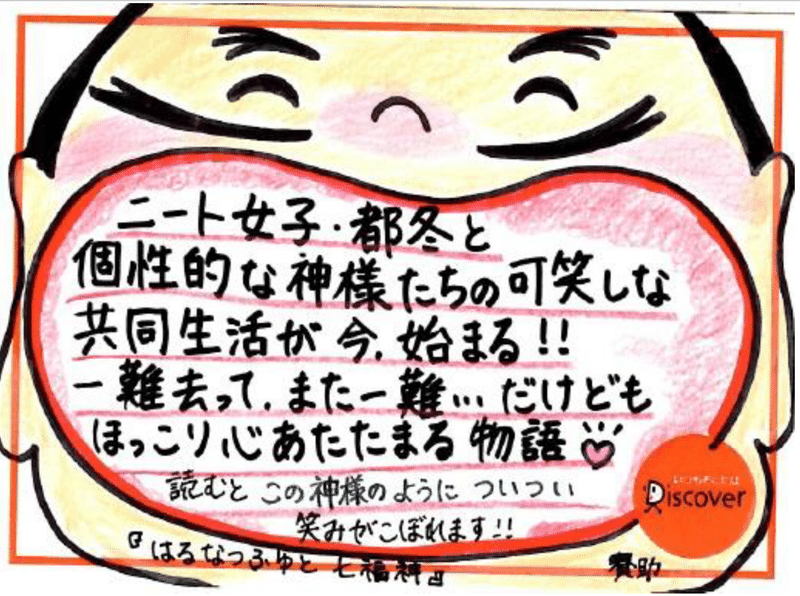 ニート女子・都冬と
個性的な神様たちの可笑しな
共同生活が今、始まる!!
一難去って、また一難…だけども
ほっこり心あたたまる物語♡
読むとこの神様のようについつい
笑みがこぼれます!!
Discover
『はるなつふゆと七福神』
賛助